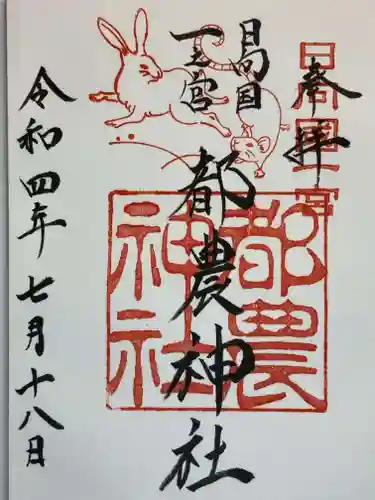 奉拝
日向国
一之宮
都農神社
令和四年七月十八日
日向国一宮
都農
神社